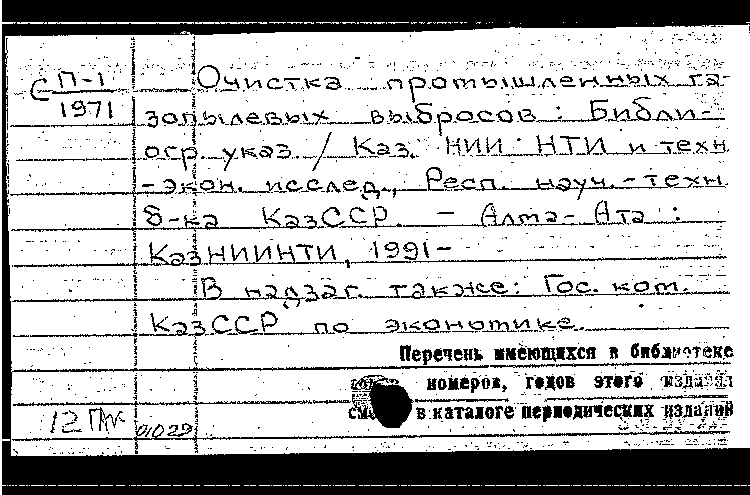 С П-1
1971
Очистка промышленных га-
зопылевых выбросов : Библи-
огр. указ. / Каз. НИИ НТИ и техн.
-экон. исслед., Респ. науч.-техн.
б-ка КазССР. - Алма-Ата :
КазНИИНТИ, 1991-
В надзаг. также: Гос. ком.
КазССР по экономике.
Перечень имеющихся в библиотеке
номеров, годов этого издания
в каталоге периодических изданий
01029